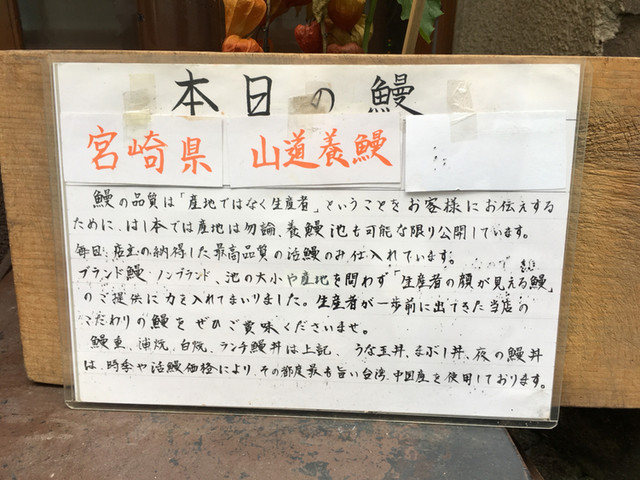 本日の鰻
宮崎県 山道養鰻
鰻の品質は「産地ではなく生産者」ということをお客様にお伝えする
ために、はし本では産地は勿論、養鰻池も可能な限り公開しています。
毎日、店主の納得した最高品質の活鰻のみ仕入れています。
ブランド鰻、ノンブランド、池の大小や産地を問わず「生産者の顔が見える鰻」
のご提供に力を入れてまいりました。生産者が一歩前に出てきた当店の
こだわりの鰻をぜひご賞味くださいませ。
鰻重、蒲焼、白焼、ランチ鰻丼は上記、うな玉丼、まぶし丼、夜の鰻丼
は、時季や活鰻価格により、その都度最も旨い台湾、中国産を使用しております。